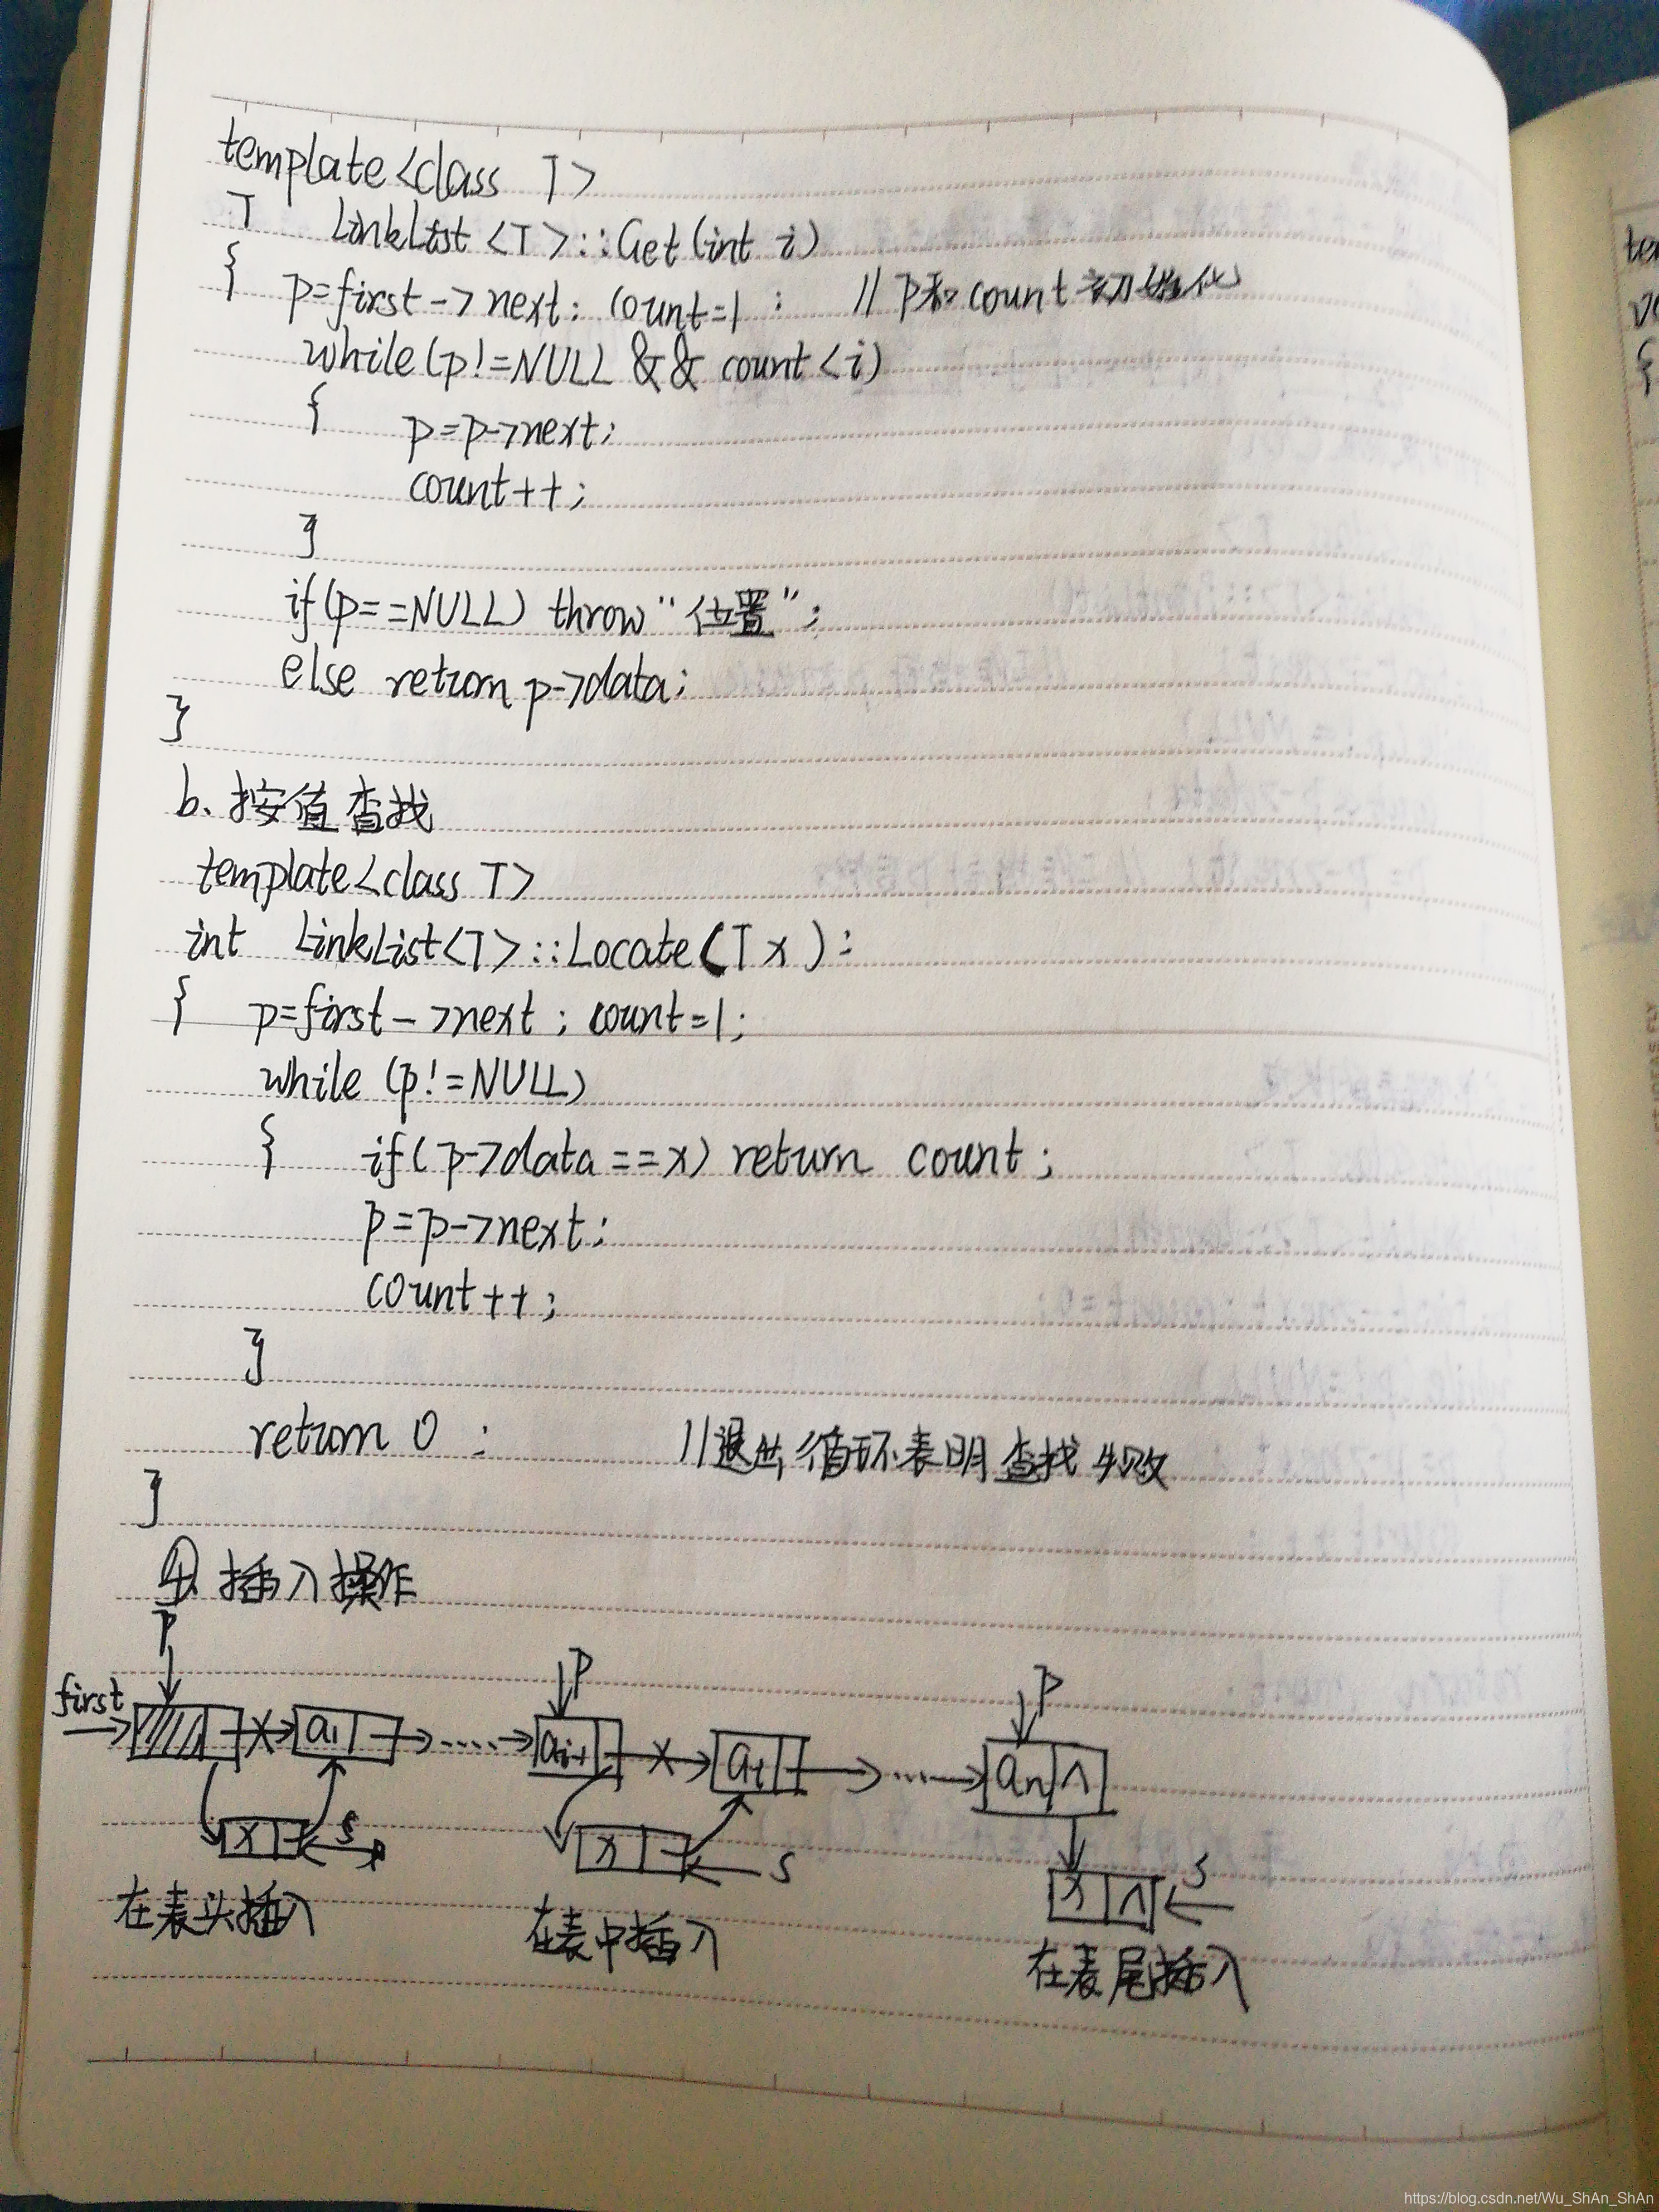 template<class T>
T LinkList<T>::Get(int i)
{ p=first->next; count=1; //p和count初始化
while(p!=NULL && count<i)
{ p=p->next;
count++;
}
if(p==NULL) throw "位置";
else return p->data;
}
b、按值查找
template<class T>
int LinkList<T>::Locate(T x):
{ p=first->next; count=1;
while (p!=NULL)
{ if(p->data==x) return count;
p=p->next;
count++;
}
return 0; //退出循环表明查找失败
}
④ 插入操作
P P P
first a1 ai-1 ai an ∧
x s x s x ∧ s
在表头插入 在表中插入 在表尾插入
https://blog.csdn.net/Wu_ShAn_ShAn